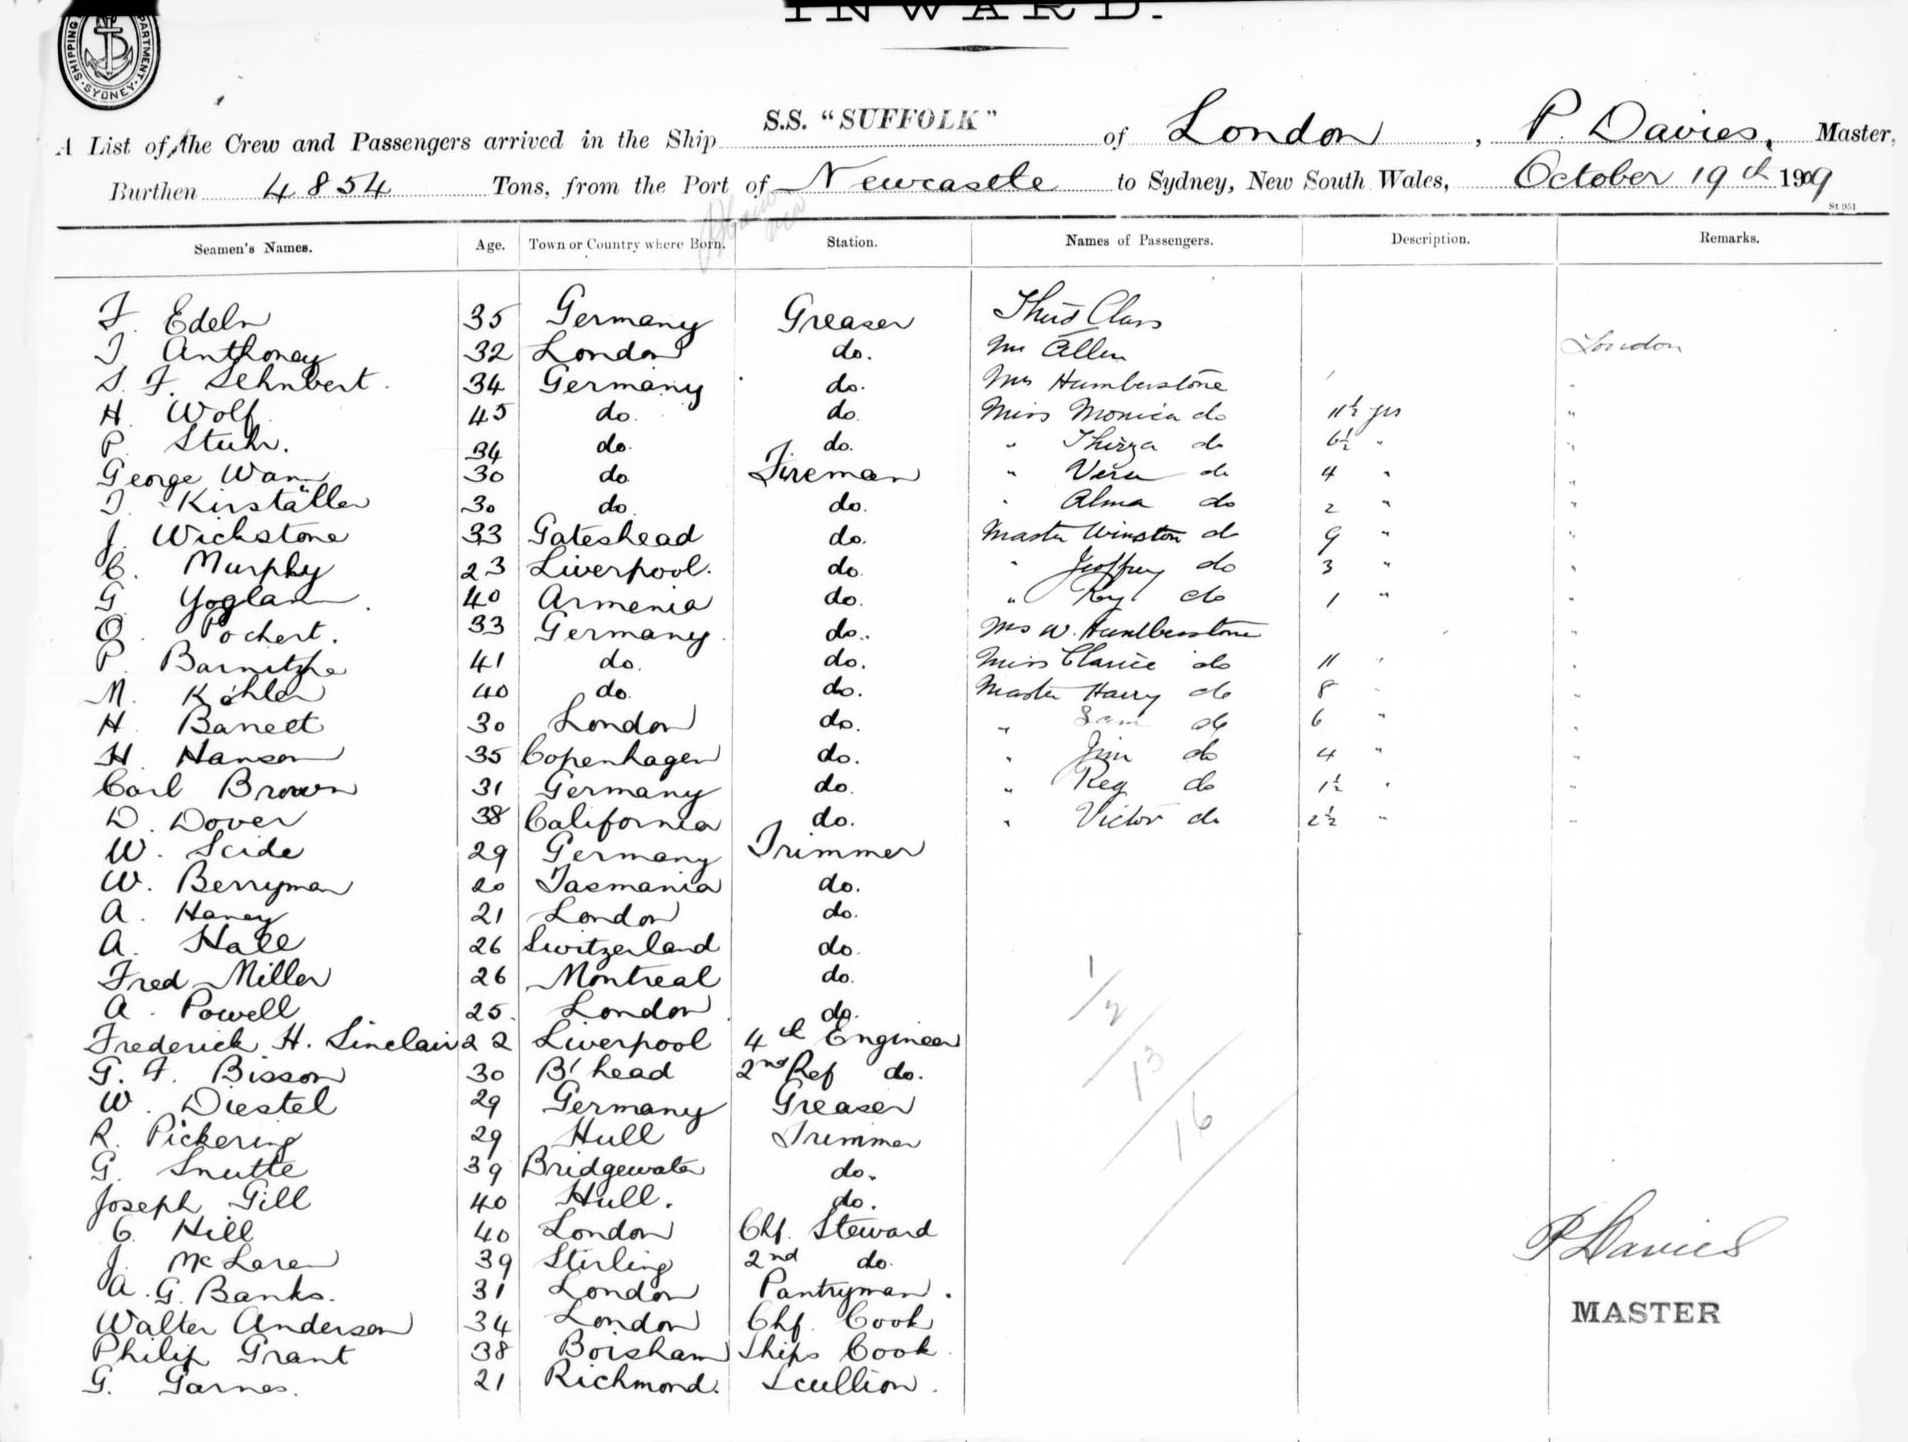 INWARD.
SHIPPING DEPARTMENT. SYDNEY
A List of the Crew and Passengers arrived in the Ship S.S. "SUFFOLK" of London, P. Davies, Master,
Burthen 4854 Tons, from the Port of Newcastle to Sydney, New South Wales, October 19th 1909
St 951
Seamen's Names. Age. Town or Country where Born. Station. Names of Passengers. Description. Remarks.
F. Edeln 35 Germany Greaser Third Class
J Anthoney 32 London do. Mr Allen London
S. F. Sehnbert. 34 Germany do. Mrs Humberstone "
H. Wolf 45 do. do. Miss Monica do 11½ yrs "
P. Stuhr. 34 do. do. " Thirza do 6½ " "
George Wann 30 do. Fireman " Vera do 4 " "
J. Kirställer 30 do. do. " Alma do 2 " "
J. Wichstone 33 Gateshead do. Master Winston do 9 " "
C. Murphy 23 Liverpool. do. " Jeoffrey do 3 " "
G. Yoglan 40 Armenia do. " Roy do 1 " "
O. Pochert. 33 Germany do. Mrs W. Humberstone "
P. Barnitzke 41 do. do. Miss Clarice do 11 " "
M. Köhler 40 do. do. Master Harry do 8 " "
H. Banett 30 London do. " Sam do 6 " "
H. Hanson 35 Copenhagen do. " Jim do 4 " "
Carl Brown 31 Germany do. " Reg do 1½ " "
D. Dover 38 California do. " Victor do 2½ " "
W. Scide 29 Germany Trimmer
W. Berryman 20 Tasmania do.
A. Haney 21 London do.
A. Hall 26 Switzerland do.
Fred Miller 26 Montreal do.
A. Powell 25. London do.
Frederick H. Sinclair 22 Liverpool 4th Engineer
G. F. Bisson 30 B'head 2nd Ref do.
W. Diestel 29 Germany Greaser
R. Pickering 29 Hull Trimmer
G. Snutte 39 Bridgewater do.
Joseph Gill 40 Hull. do.
C. Hill 40 London Chf. Steward
J. McLaren 39 Stirling 2nd do.
A. G. Banks. 31 London Pantryman.
Walter Anderson 34 London Chf. Cook
Philip Grant 38 Boisham Ships Cook
G. Garnes. 21 Richmond. Scullion.
1
2
13
16
P Davies
MASTER